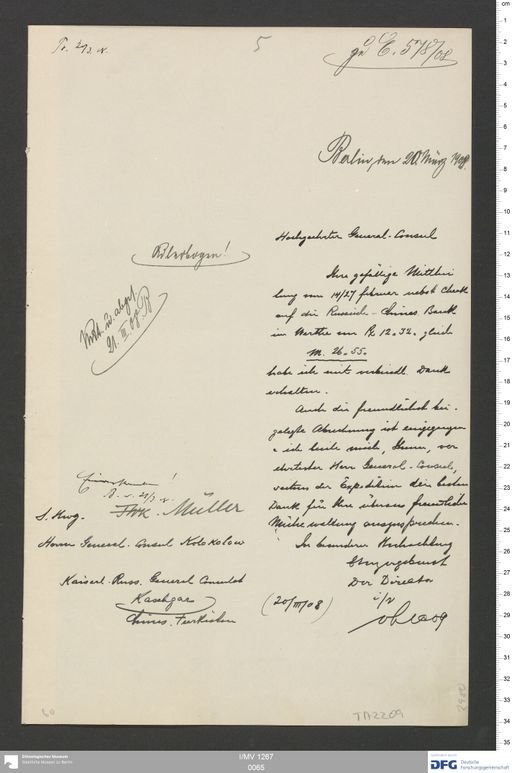 5
zu E. 578/08
Berlin, den 20. März 1908.
Hochgeehrter General-Consul
Adlerbogen!
Ihre gefällige Mitthei-
lung vom 14/27 Februar nebst Check
auf die Russich-Chines. Bank
im Werthe von R. 12.32. gleich
M. 26.55.
habe ich mit verbindl. Dank
erhalten.
Auch die freundlichst bei-
gelegte Abrechnung ist eingegangen
ich beeile mich, Ihnen, ver-
ehrtester Herr General-Consul,
seitens der Expedition den besten
Dank für Ihre überaus freundliche
Mühewaltung auszusprechen.
In besonderer Hochachtung
Der Director
i/v
21. III. 08
Einverstanden!
Müller
S. Hwg.
Herrn General-Consul Kolokolow
Kaiserl. Russ. General Consulat
Kaschgar
Chines. Turkistan
(20/III/08)
TA2209
Ethnologisches Museum
Staatliche Museen zu Berlin
I/MV 1267
0065
DFG Deutsche
Forschungsgemeinschaft
cm
1
2
3
4
5
6
7
8
9
10
11
12
13
14
15
16
17
18
19
20
21
22
23
24
25
26
27
28
29
30
31
32
33
34
35